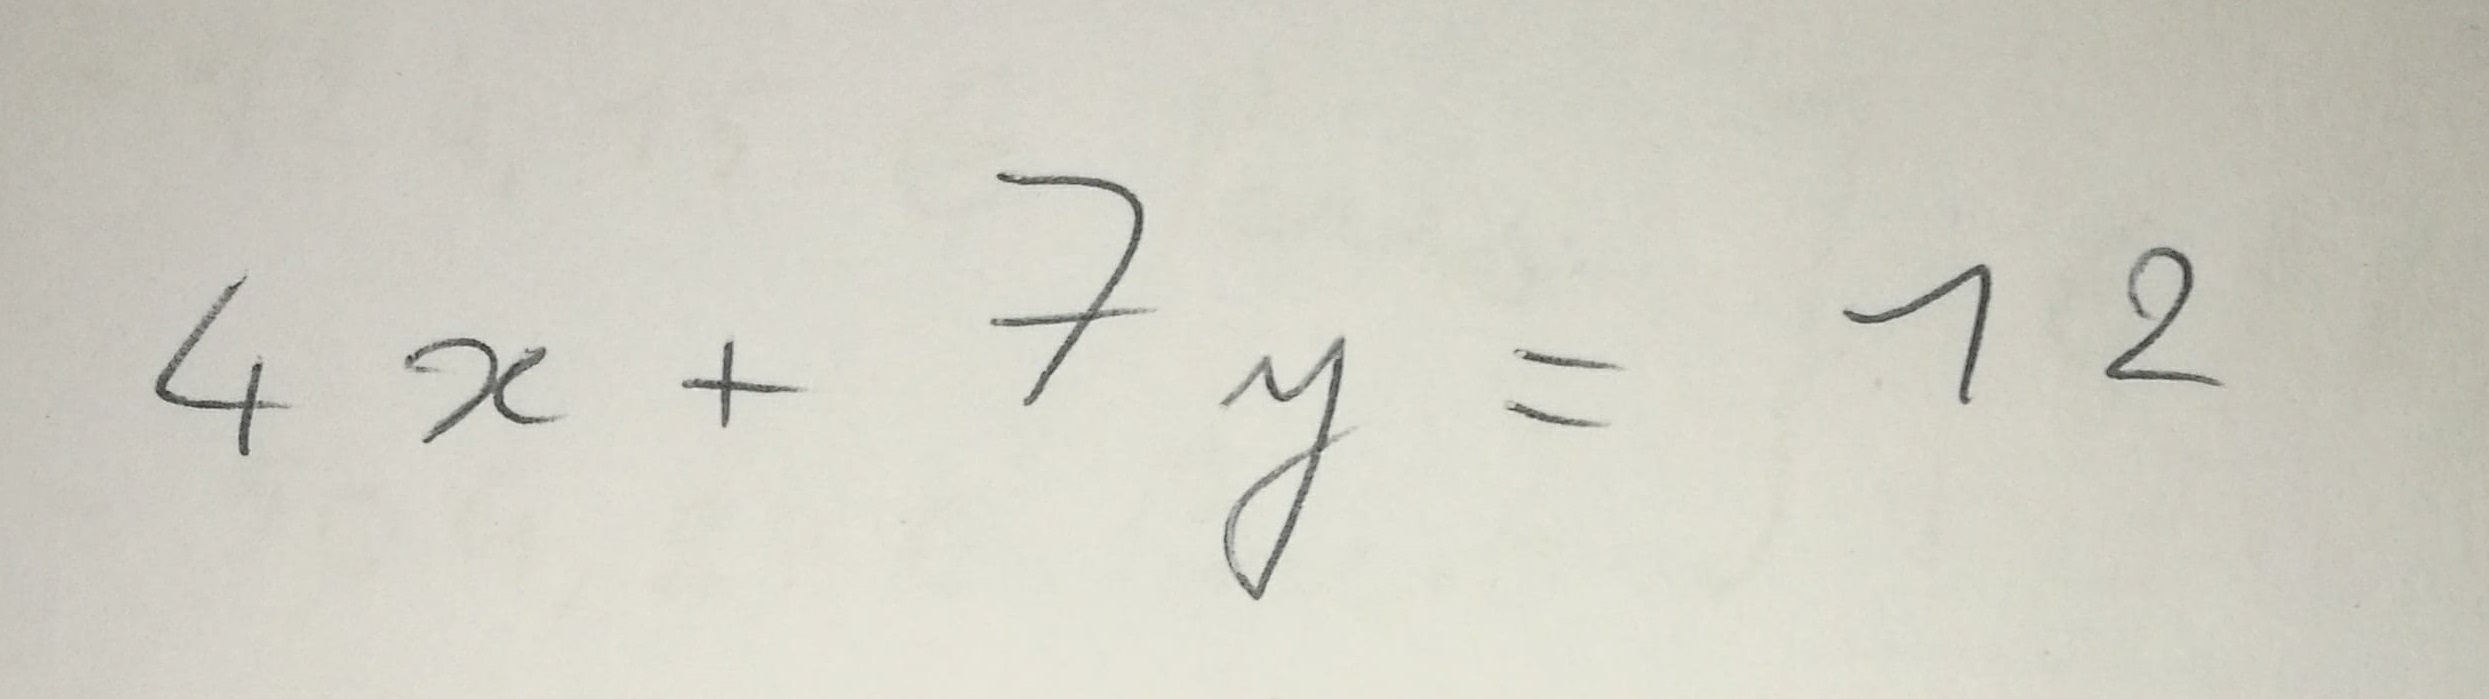 4x + 7y = 12